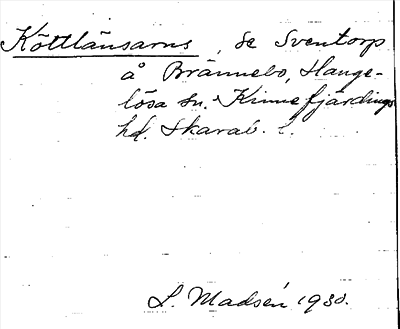 Köttlänsarns, se Sventorp
å Brännebo, Hange-
lösa sn. Kinnefjärdings
hd. Skarab. l.
L. Madsén 1930.